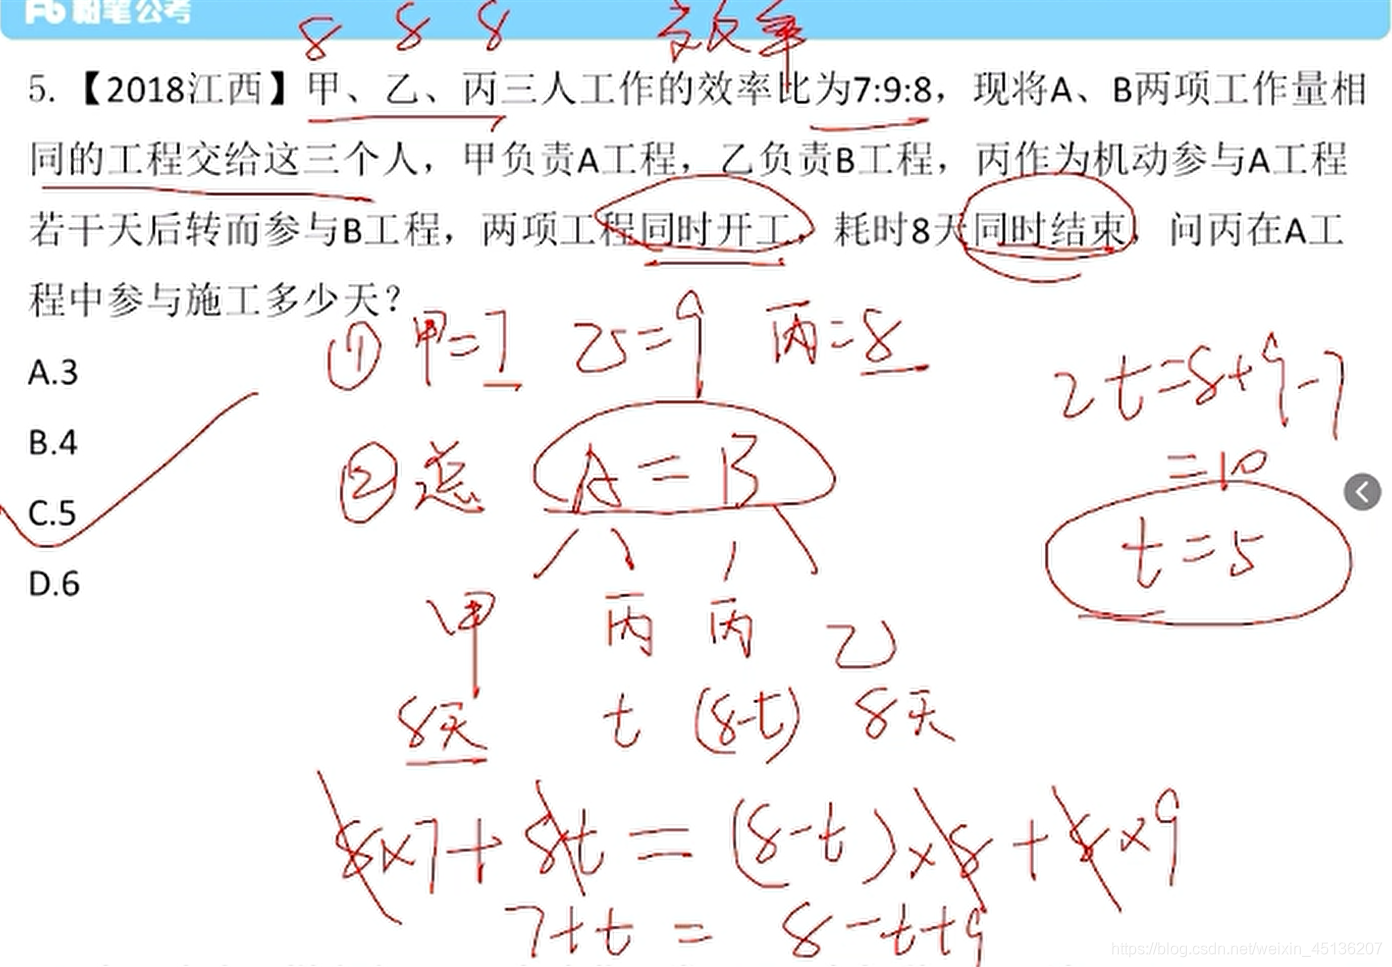 粉笔公考
8 8 8 效率
5.【2018江西】甲、乙、丙三人工作的效率比为7:9:8，现将A、B两项工作量相
同的工程交给这三个人，甲负责A工程，乙负责B工程，丙作为机动参与A工程
若干天后转而参与B工程，两项工程同时开工，耗时8天同时结束，问丙在A工
程中参与施工多少天？
① 甲=7 乙=9 丙=8
A.3
2t=8+9-7
B.4
=10
② 总 A=B
C.5
t=5
D.6
甲 丙 丙 乙
8天 t (8-t) 8天
8×7+8t=(8-t)×8+8×9
7+t=8-t+9
https://blog.csdn.net/weixin_45136207